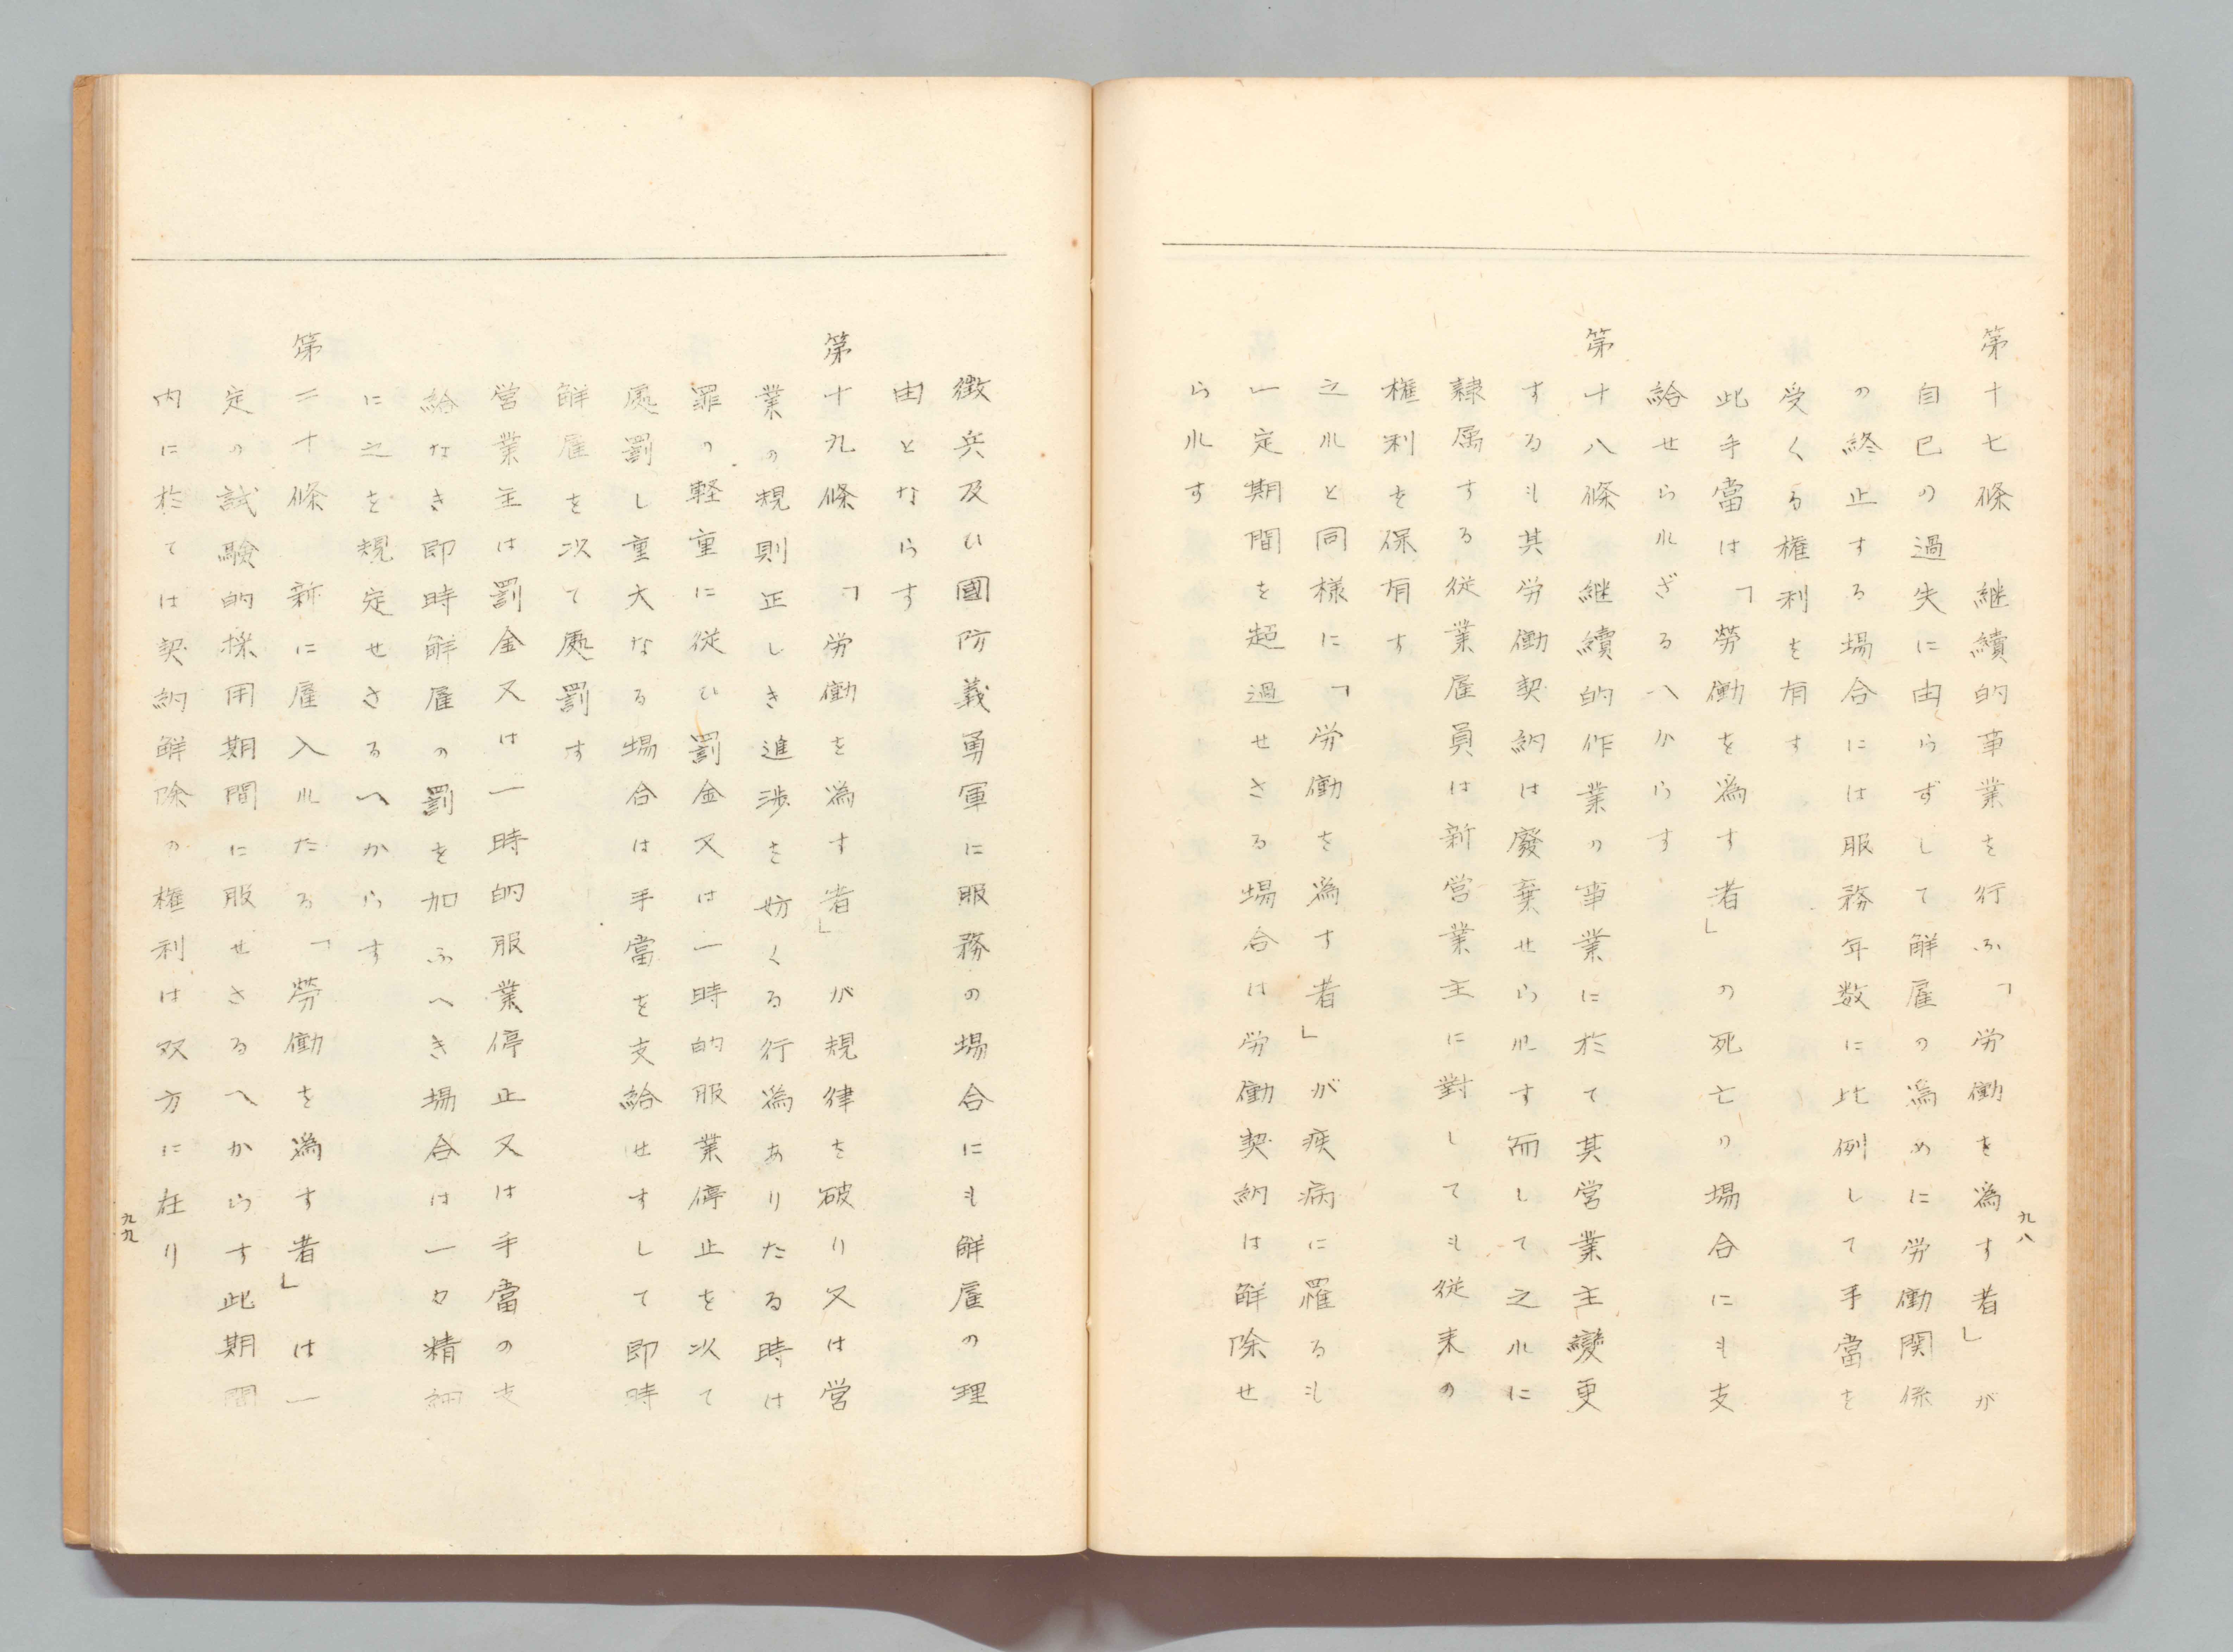 第十七條　継續的事業を行ふ「労働を爲す者」が
自己の過失に由らずして解雇の爲めに労働関係
の終止する場合には服務年数に比例して手當を
受くる権利を有す
此手當は「勞働を爲す者」の死亡の場合にも支
給せられざるへからす
第十八條　継續的作業の事業に於て其営業主變更
するも其労働契約は廢棄せられす而して之れに
隷属する従業雇員は新営業主に對しても従来の
権利を保有す
之れと同様に「労働を爲す者」が疾病に罹るも
一定期間を超過せさる場合は労働契約は解除せ
られす
九八
徴兵及ひ國防義勇軍に服務の場合にも解雇の理
由とならす
第十九條　「労働を爲す者」が規律を破り又は営
業の規則正しき進渉を妨くる行爲ありたる時は
罪の軽重に従ひ罰金又は一時的服業停止を以て
處罰し重大なる場合は手當を支給せすして即時
解雇を以て處罰す
営業主は罰金又は一時的服業停止又は手當の支
給なき即時解雇の罰を加ふへき場合は一々精細
に之を規定せさるへからす
第二十條　新に雇入れたる「勞働を爲す者」は一
定の試驗的採用期間に服せさるへからす此期間
内に於ては契約解除の権利は双方に在り
九九